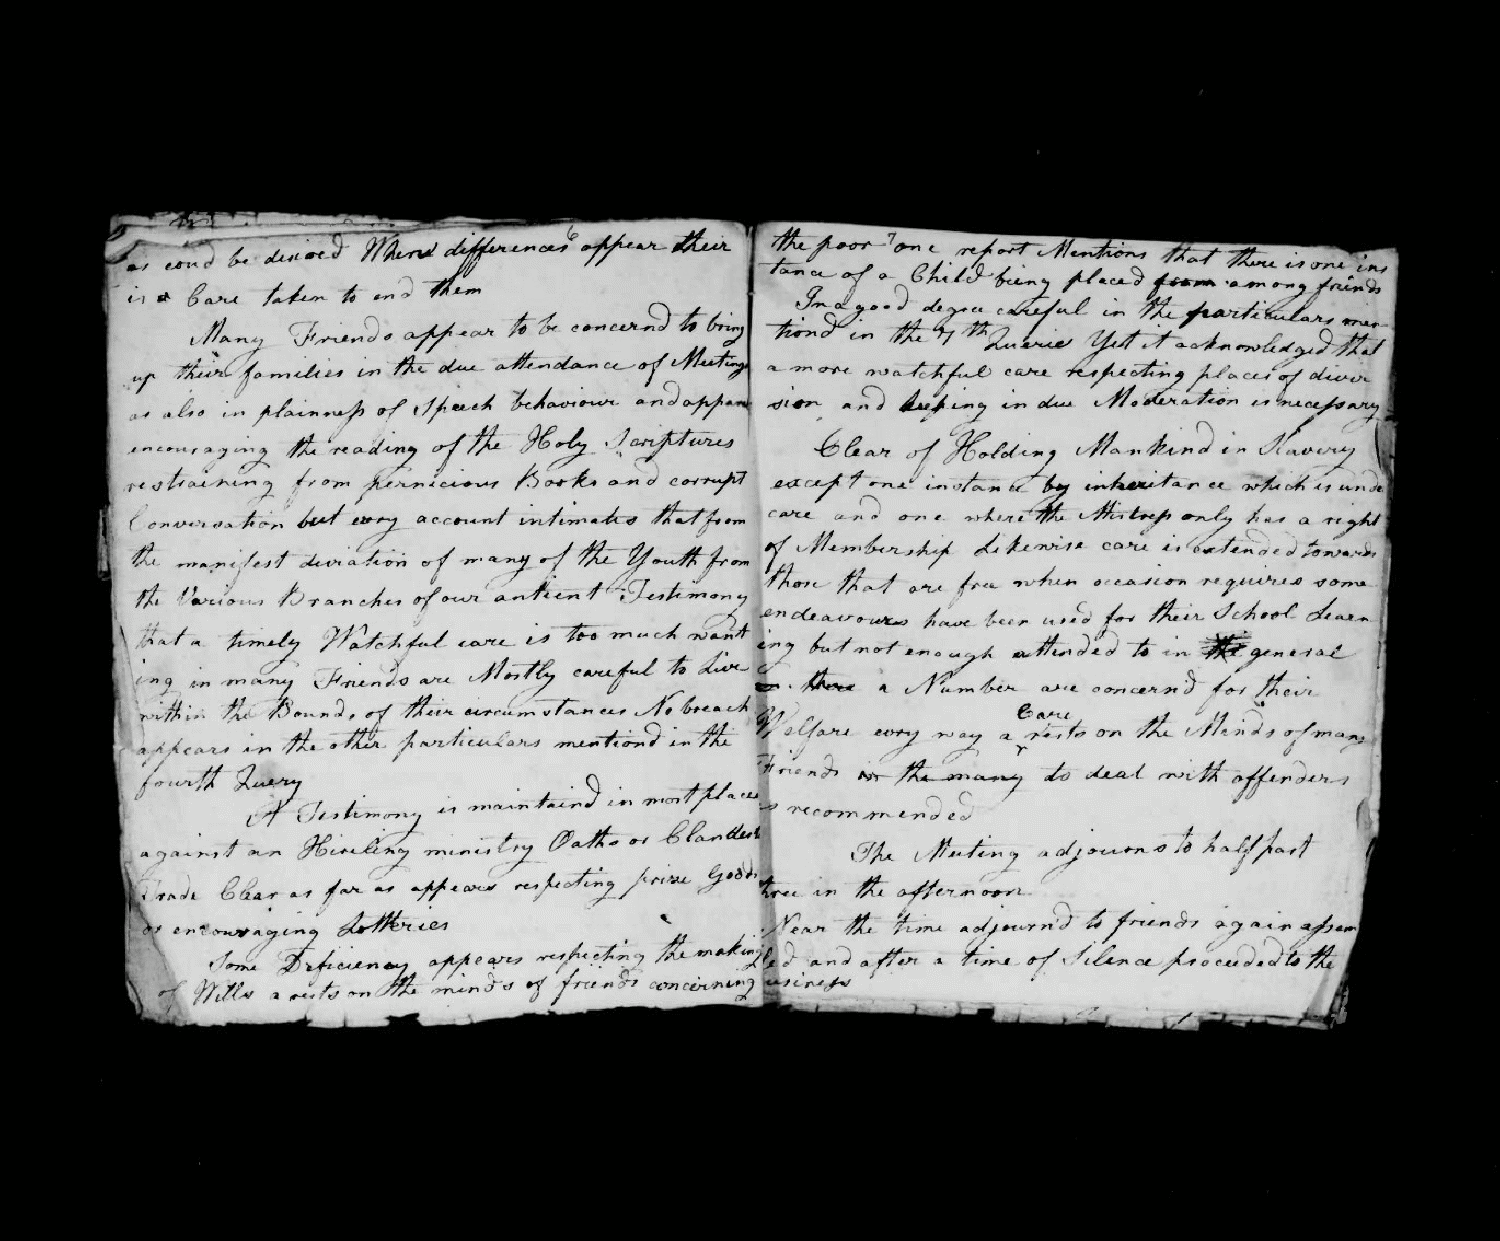 6
as coud be desired Where differences appear their
is a Care taken to end them
Many Friends appear to be concernd to bring
up their families in the due attendance of Meetings
as also in plainness of Speech behaviour and appare
encouraging the reading of the Holy Scriptures
restraining from pernicious Books and corrupt
Conversation but evry account intimates that from
the manifest diviation of many of the Youth from
the Various Branches of our antient Testimony
that a timely Watchful care is too much want
ing in many Friends are Mostly careful to Live
within the Bounds of their circumstances No breach
appears in the other particulars mentiond in the
fourth Query
A Testimony is maintaind in most places
against an Hireling ministry Oaths or Clandest
Trade Clear as far as appears respecting prize Goods
or encouraging Lotteries
Some Deficiency appears respecting the making
of Wills a rests on the minds of friends concerning
7
the poor one report Mentions that there is one ins
tance of a Child being placed from among frinds
In a good degree careful in the particulars men
tiond in the 7th Querie Yet it acknowledged that
a more watchful care respecting places of diver
sion and keeping in due Moderation is necessary
Clear of Holding Mankind in Slavery
except one instance by inheritance which is unde
care and one where the Mistress only has a right
of Membership Likewise care is extended towards
those that are free when occasion requires some
endeavours have been used for their School Learn
ing but not enough attended to in the general
there a Number are concern'd for their
Welfare evry way a Care rests on the Minds of many
Friends in the many to deal with offenders
as recommended
The Meeting adjourns to half past
three in the afternoon
Near the time adjournd to friends again assem
led and after a time of Silence proceeded to the
usiness